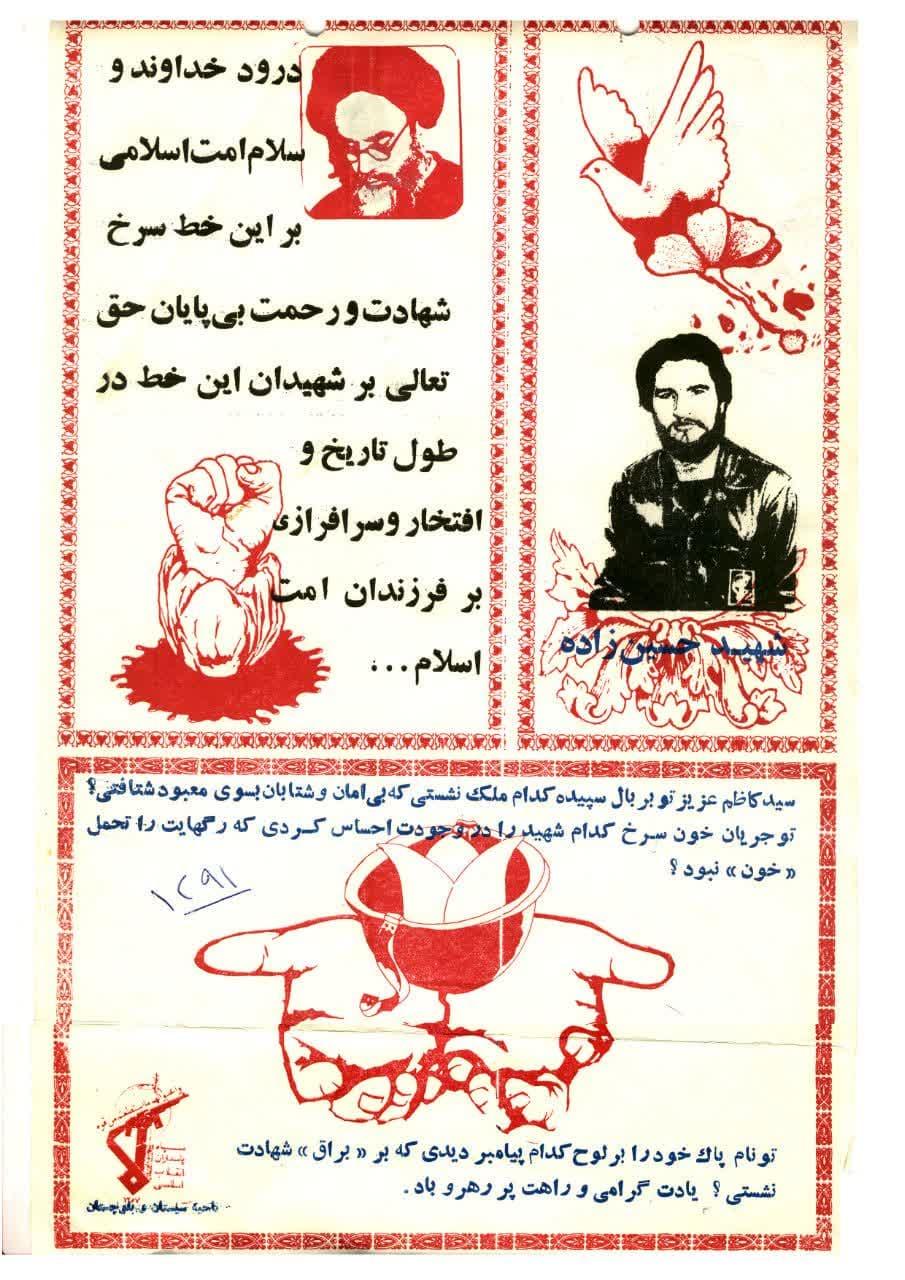 درود خداوند و
سلام امت اسلامی
بر این خط سرخ
شهادت و رحمت بی‌پایان حق
تعالی بر شهیدان این خط در
طول تاریخ و
افتخار و سرافرازی
بر فرزندان امت
اسلام ...
شهید حسین زاده
سید کاظم عزیز تو بر بال سپیده کدام ملک نشستی که بی‌امان و شتابان بسوی معبود شتافتی؟
تو جریان خون سرخ کدام شهید را در وجودت احساس کردی که رگهایت را تحمل
«خون» نبود؟
۱۲۹۱
تو نام پاك خود را بر لوح کدام پیامبر دیدی که بر «براق» شهادت
نشستی؟ یادت گرامی و راهت پر رهرو باد.
سپاه
پاسداران
انقلاب
اسلامی
ناحیه سیستان و بلوچستان